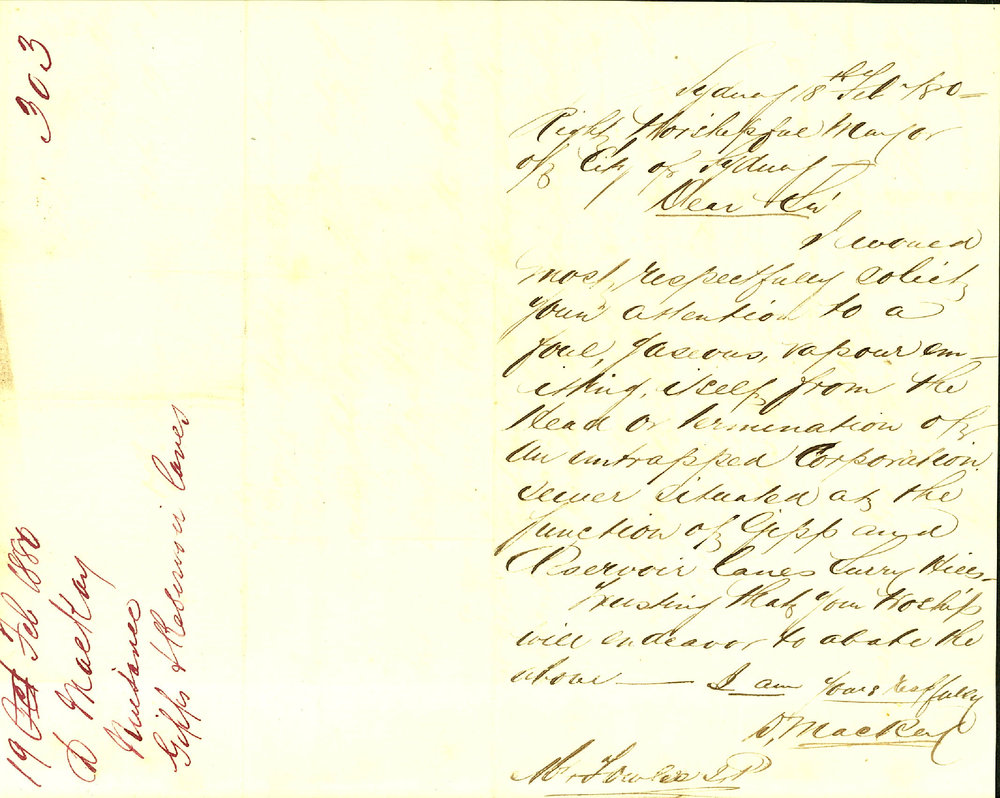 303
19 Oct Feb 1880
D Mackay
Nuidance
Gipps & Reservoir Lanes
Sydney 18th Feb /80 —
Right Worshipful Mayor
of City of Sydney —
Dear Sir
I would
most, respectfully solicit
your attention to a
foul, gaseous, vapour em—
itting, itself from the
Head or termination of
an untrapped Corporation
sewer situated at the
junction of Gipp and
Reservoir Lanes Surry Hills—
Trusting that your Woship
will endeavor to abate the
above — I am yours respfully
D, Mackay
Mr Fowler J.P